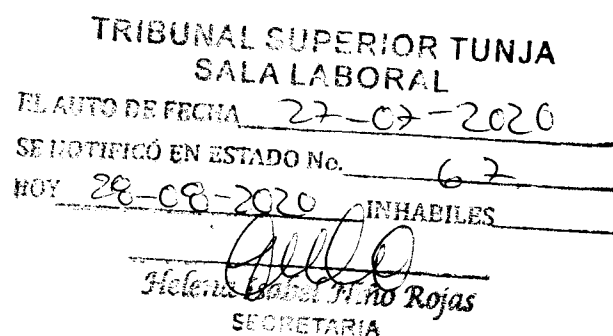 TRIBUNAL SUPERIOR TUNJA
SALA LABORAL
EL AUTO DE FECHA 27-07-2020
SE NOTIFICÓ EN ESTADO No. 67
HOY 28-08-2020 INHABILES
Helena Isabel Niño Rojas
SECRETARIA